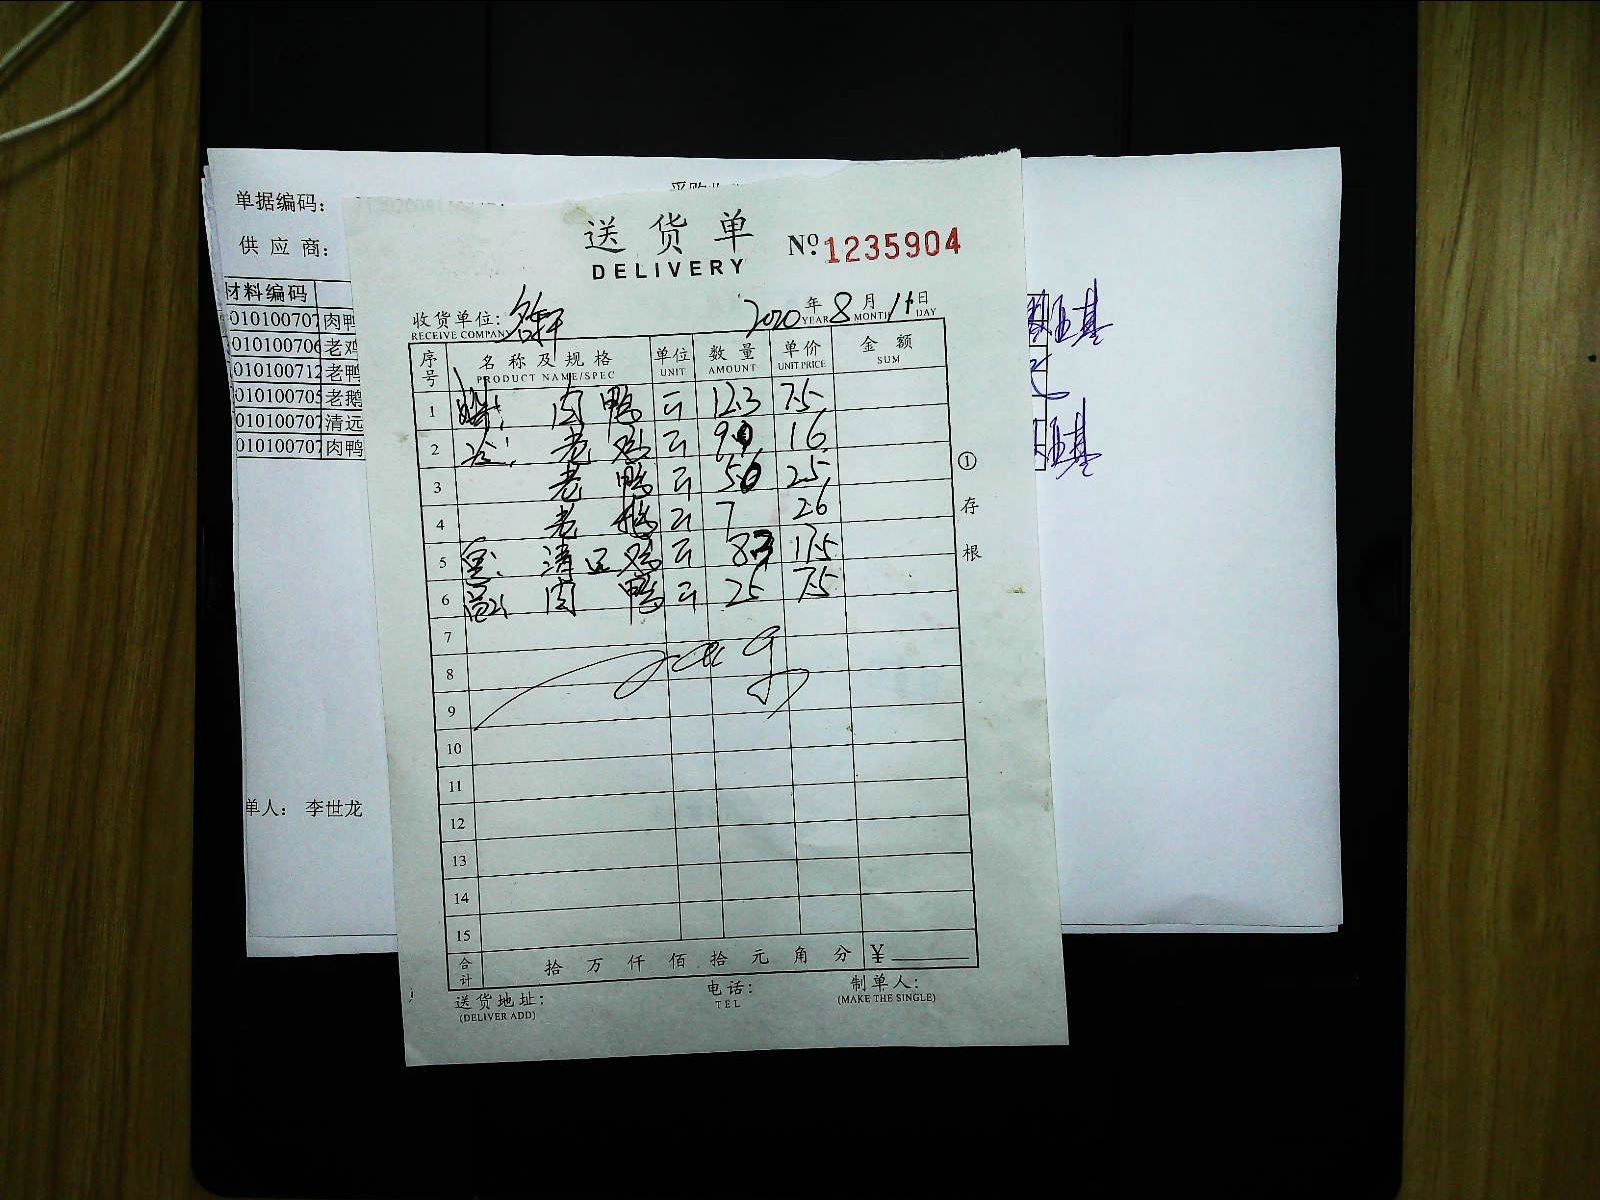 单据编码:
供 应 商:
材料编码
010100707 肉鸭
010100706 老鸡
010100712 老鸭
010100705 老鹅
010100707 清远
010100707 肉鸭
单人: 李世龙
送 货 单
DELIVERY
№ 1235904
收货单位: 名轩
RECEIVE COMPANY
2020 年 8 月 11 日
YEAR MONTH DAY
序号 名 称 及 规 格 单位 数 量 单价 金 额
PRODUCT NAME/SPEC UNIT AMOUNT UNIT PRICE SUM
1 肉鸭 斤 12.3 7.5
2 老鸡 斤 16
3 老鸭 斤 25
4 老鹅 斤 7 26
5 清远鸡 斤 17.5
6 肉鸭 斤 25 7.5
7
8
9
10
11
12
13
14
15
合计 拾 万 仟 佰 拾 元 角 分 ¥
送货地址: 电话: 制单人:
(DELIVER ADD) TEL (MAKE THE SINGLE)
① 存根